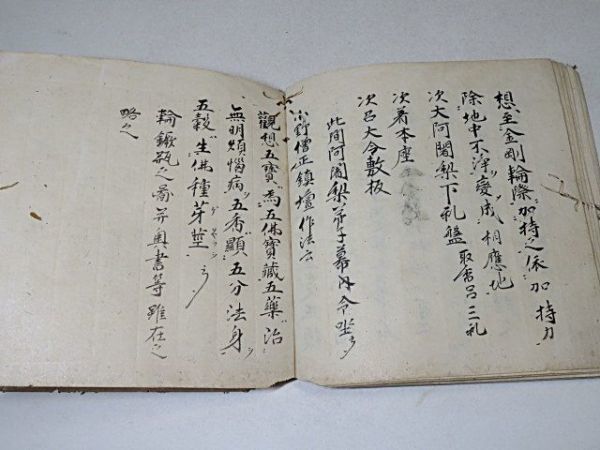 想至金剛輪際加持之依加持力
除地中不淨變成相應地
次大阿闍梨下礼盤取香呂三礼
次着本座
次呂大令敷板
此間阿闍梨弟子幕内令坐
小野僧正鎮壇作法云
觀想五寳為五佛寳藏五藥治
無明煩惱病五香顯五分法身
五穀生佛種芽莖云々
輪鐝瓶之圖并奥書等雖在之
略之